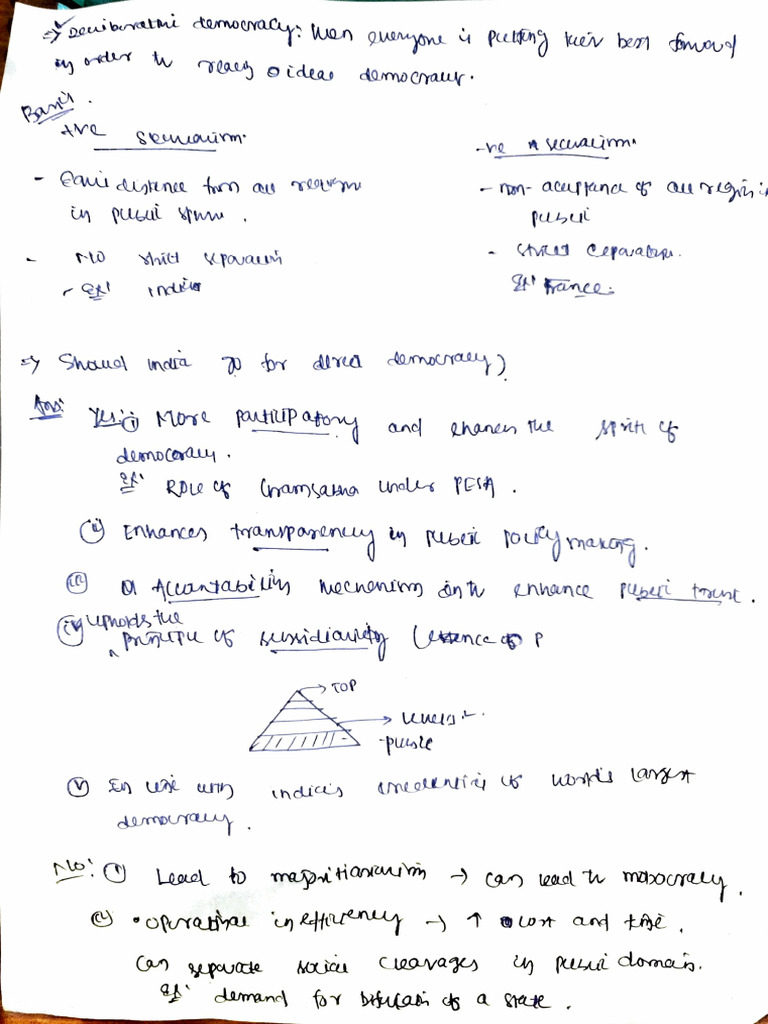 ⇒ Deliberative democracy: When everyone is putting their best forward
in order to reach ideas democracy.
Basis.
+ve secularism.
-ve secularism.
- Equidistance from all religion
in public sphere.
- non-aceptance of all region in
public
- No strict separation
- strict separation.
- Ex: India
Ex: France.
⇒ Should india go for direct democracy)
Ans: Yes: (i) More participatory and enhances the spirit of
democracy.
Ex: Role of Gramsabha under PESA.
(ii) Enhances transparency in public policy making.
(iii) Accountability mechanism to enhance public trust.
(iv) upholds the
principle of subsidiarity
→ TOP
→ levels
- public
(v) In line with India's credentials of world's largest
democracy.
No: (i) Lead to majoritarianism → can lead to mobocracy.
(ii) Operational inefficiency → ↑ cost and time.
Can separate social cleavages in public domain.
Ex: demand for bifurcation of a state.